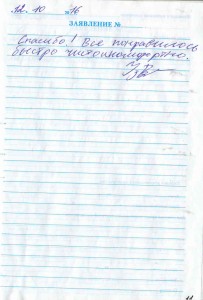 12.10 16
ЗАЯВЛЕНИЕ №
Спасибо! Все понравилось
быстро чисто и комфортно.